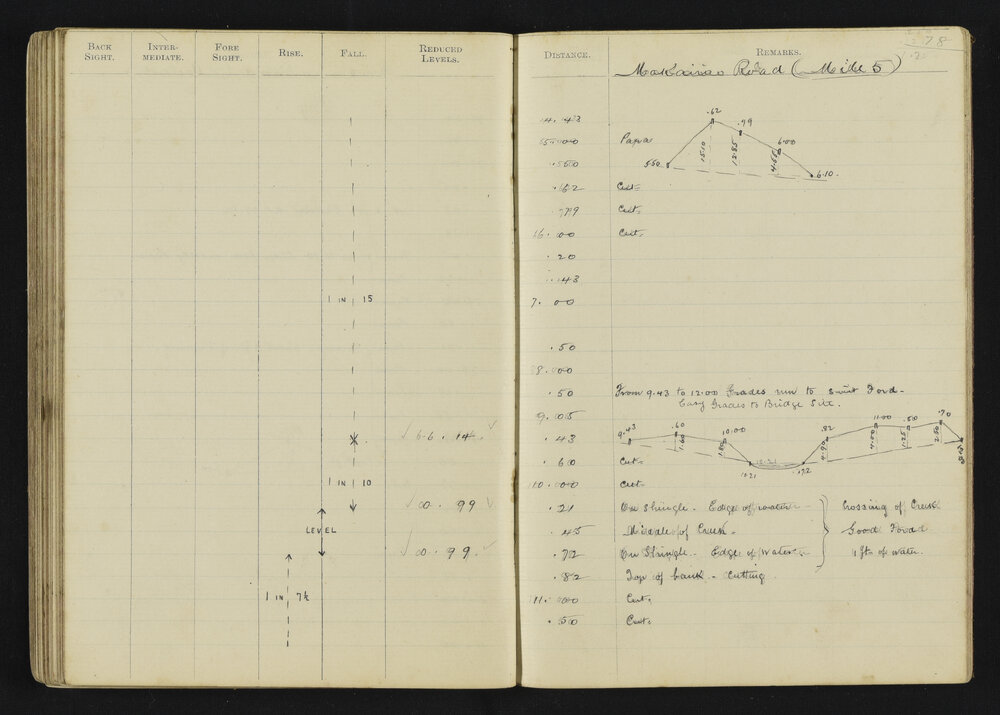 BACK SIGHT. INTER-MEDIATE. FORE SIGHT. RISE. FALL. REDUCED LEVELS.
1 IN 15
6.6. 14.
1 IN 10
00. 99
LEVEL
00. 99
1 IN 7½
78
DISTANCE. REMARKS.
Road (Mile 5)
14. 43
.62 .99 6.00
15.10 12.85 4.55
550 6.10.
55.00 Papa
.550
.62 Cut-
.99 Cut.
16.00 Cut.
.20
.43
7. 00
.50
8.00
.50 From 9.43 to 12.00 Grades run to suit Ford-
Easy Grades to Bridge Site.
9.05
9.43 .60 10.00 .82 11.00 .50 .70
1.60 1.80 4.90 4.00 1.25 2.80
10.21 .72
.43
.60 Cut.
10.00 Cut.
.21 On Shingle. Edge of water Crossing of Creek
.45 Middle of Creek. Good Ford
.72 On Shingle. Edge of Water 1 ft of water.
.82 Top of bank. Cutting.
11.00 Cut.
.50 Cut.